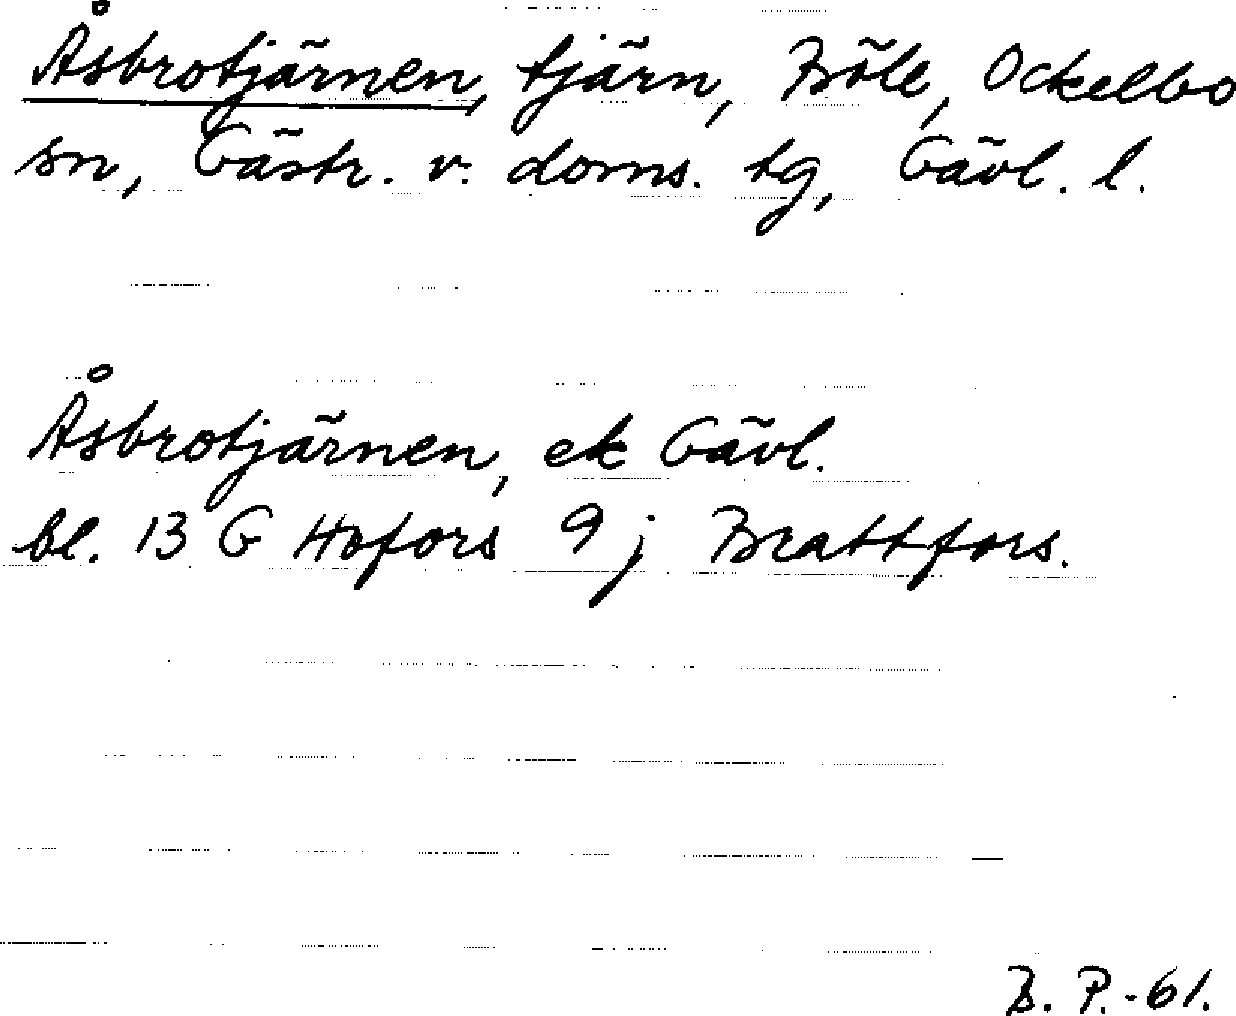 Åsbrotjärnen, tjärn, Böle, Ockelbo
sn, Gästr. v. doms. tg, Gävl. l.
Åsbrotjärnen, ek Gävl.
bl. 13 G Hofors 9 j Brattfors.
B. P. -61.